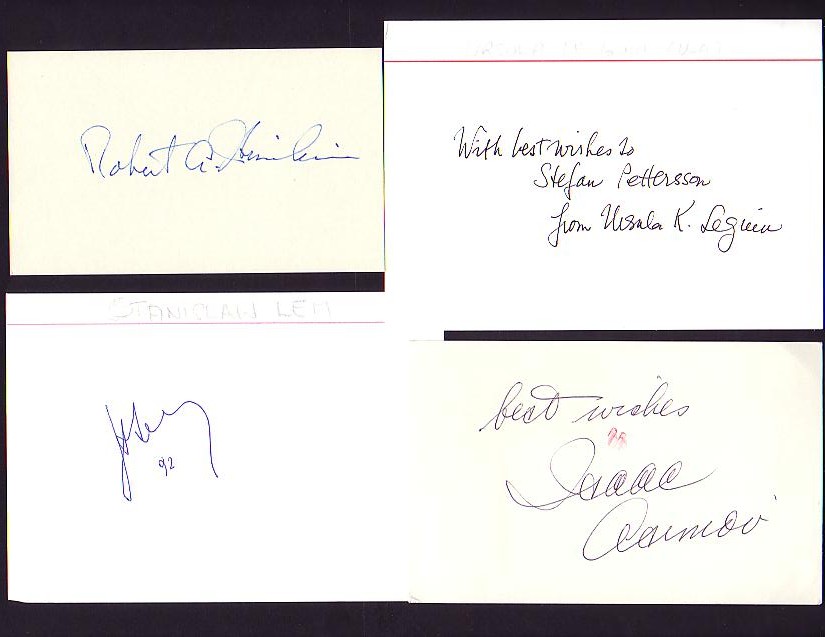 Robert A. Heinlein
With best wishes to
Stefan Pettersson
from Ursula K. Leguin
STANISLAW LEM
92
best wishes
Isaac
Asimov